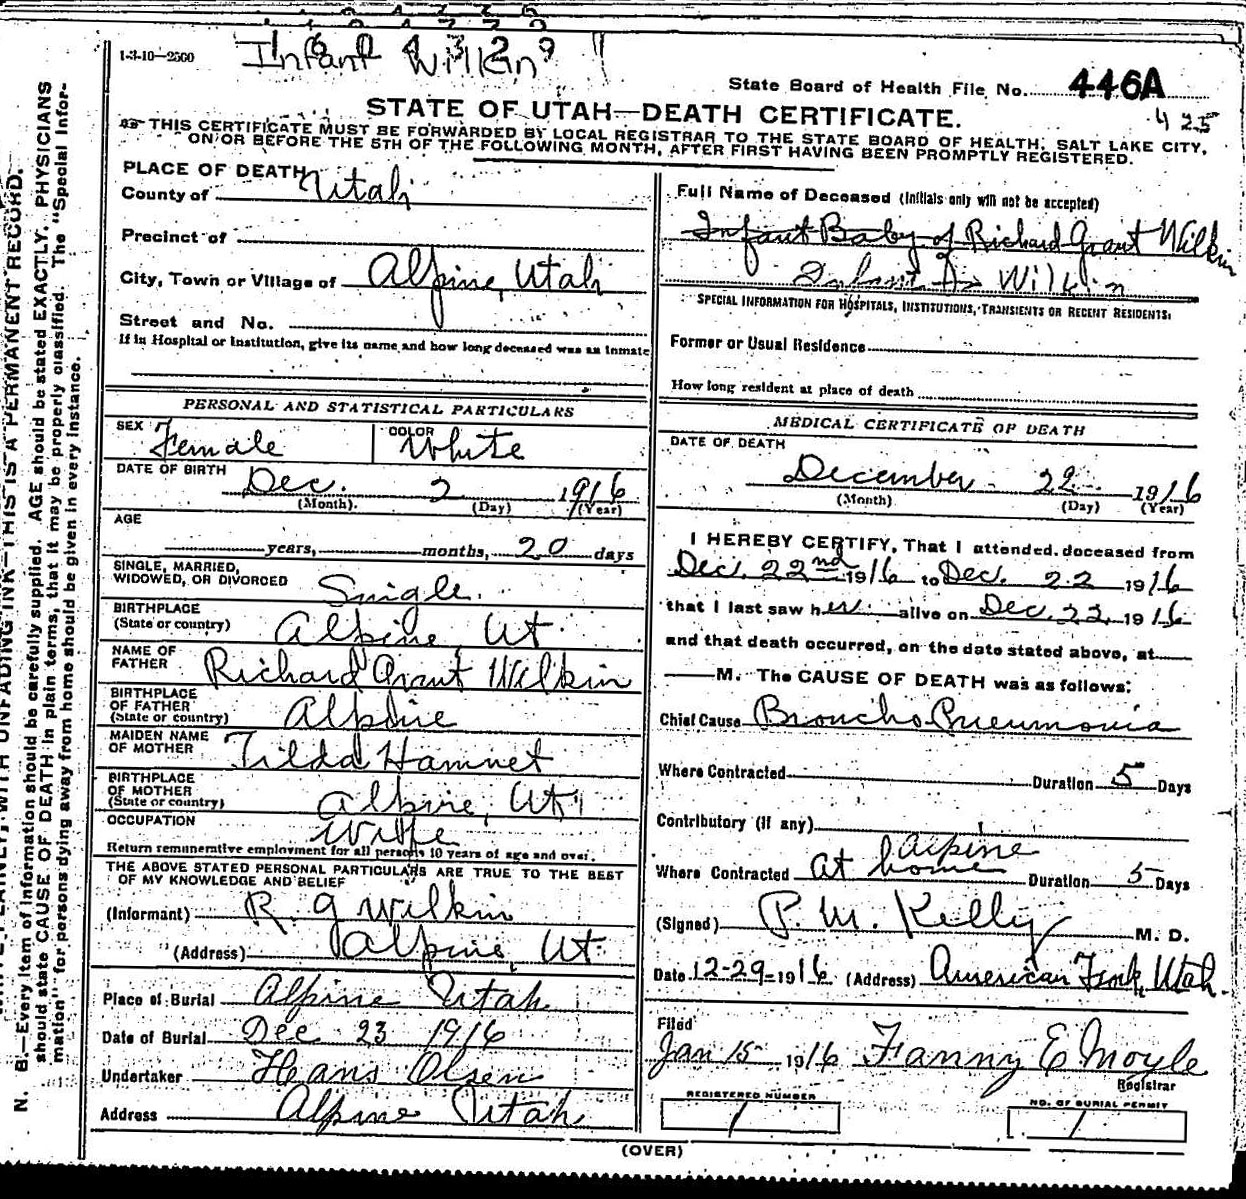 1-3-10—2500
Infant Wilkin
State Board of Health File No. 446A
425
STATE OF UTAH—DEATH CERTIFICATE.
THIS CERTIFICATE MUST BE FORWARDED BY LOCAL REGISTRAR TO THE STATE BOARD OF HEALTH, SALT LAKE CITY,
ON OR BEFORE THE 5TH OF THE FOLLOWING MONTH, AFTER FIRST HAVING BEEN PROMPTLY REGISTERED.
PLACE OF DEATH
County of Utah
Precinct of
City, Town or Village of Alpine, Utah
Street and No.
If in Hospital or Institution, give its name and how long deceased was an inmate
PERSONAL AND STATISTICAL PARTICULARS
SEX Female COLOR White
DATE OF BIRTH Dec. 2 1916
(Month) (Day) (Year)
AGE
years, months, 20 days
SINGLE, MARRIED,
WIDOWED, OR DIVORCED Single.
BIRTHPLACE
(State or country) Alpine, Ut.
NAME OF
FATHER Richard Grant Wilkin
BIRTHPLACE
OF FATHER
(State or country) Alpine
MAIDEN NAME
OF MOTHER Tilda Hamnet
BIRTHPLACE
OF MOTHER
(State or country) Alpine, Ut
OCCUPATION Wife
Return remunerative employment for all persons 10 years of age and over.
THE ABOVE STATED PERSONAL PARTICULARS ARE TRUE TO THE BEST
OF MY KNOWLEDGE AND BELIEF
(Informant) R. G Wilkin
(Address) Alpine, Ut.
Place of Burial Alpine Utah
Date of Burial Dec 23 1916
Undertaker Hans Olsen
Address Alpine Utah
Full Name of Deceased (Initials only will not be accepted)
Infant Baby of Richard Grant Wilkin
Infant Wilkin
SPECIAL INFORMATION FOR HOSPITALS, INSTITUTIONS, TRANSIENTS OR RECENT RESIDENTS:
Former or Usual Residence
How long resident at place of death
MEDICAL CERTIFICATE OF DEATH
DATE OF DEATH
December 22 1916
(Month) (Day) (Year)
I HEREBY CERTIFY, That I attended deceased from
Dec. 22nd 1916 to Dec. 22 1916
that I last saw her alive on Dec. 22, 1916
and that death occurred, on the date stated above, at
M. The CAUSE OF DEATH was as follows:
Chief Cause Broncho Pneumonia
Where Contracted Duration 5 Days
Contributory (if any)
Alpine
Where Contracted at home Duration 5 Days
(Signed) P. M. Kelly M. D.
Date 12-29-1916 (Address) American Fork, Utah.
Filed
Jan 15 1916 Fanny E Moyle
Registrar
REGISTERED NUMBER
1
NO. OF BURIAL PERMIT
1
(OVER)
UNFADING INK—THIS IS A PERMANENT RECORD.
N. B.—Every item of information should be carefully supplied. AGE should be stated EXACTLY. PHYSICIANS
should state CAUSE OF DEATH in plain terms, that it may be properly classified. The "Special Infor-
mation" for persons dying away from home should be given in every instance.